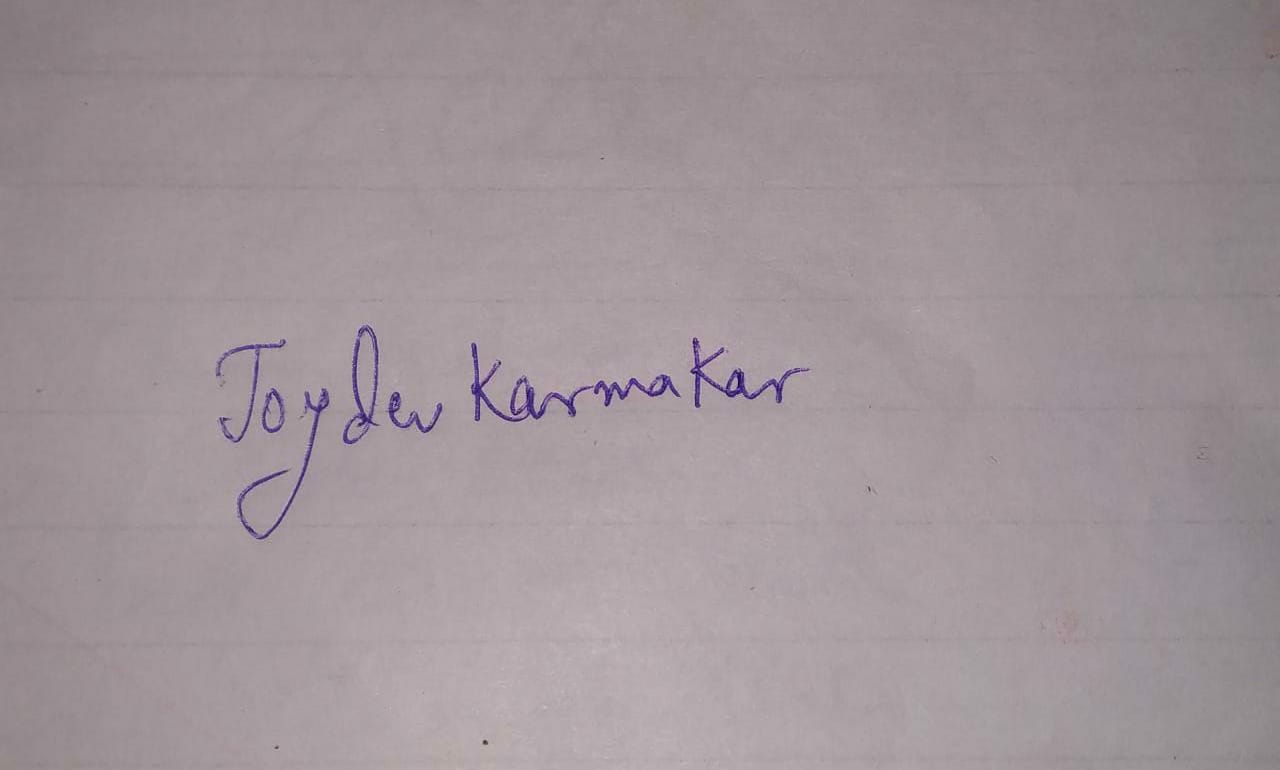 Joydev Karmakar